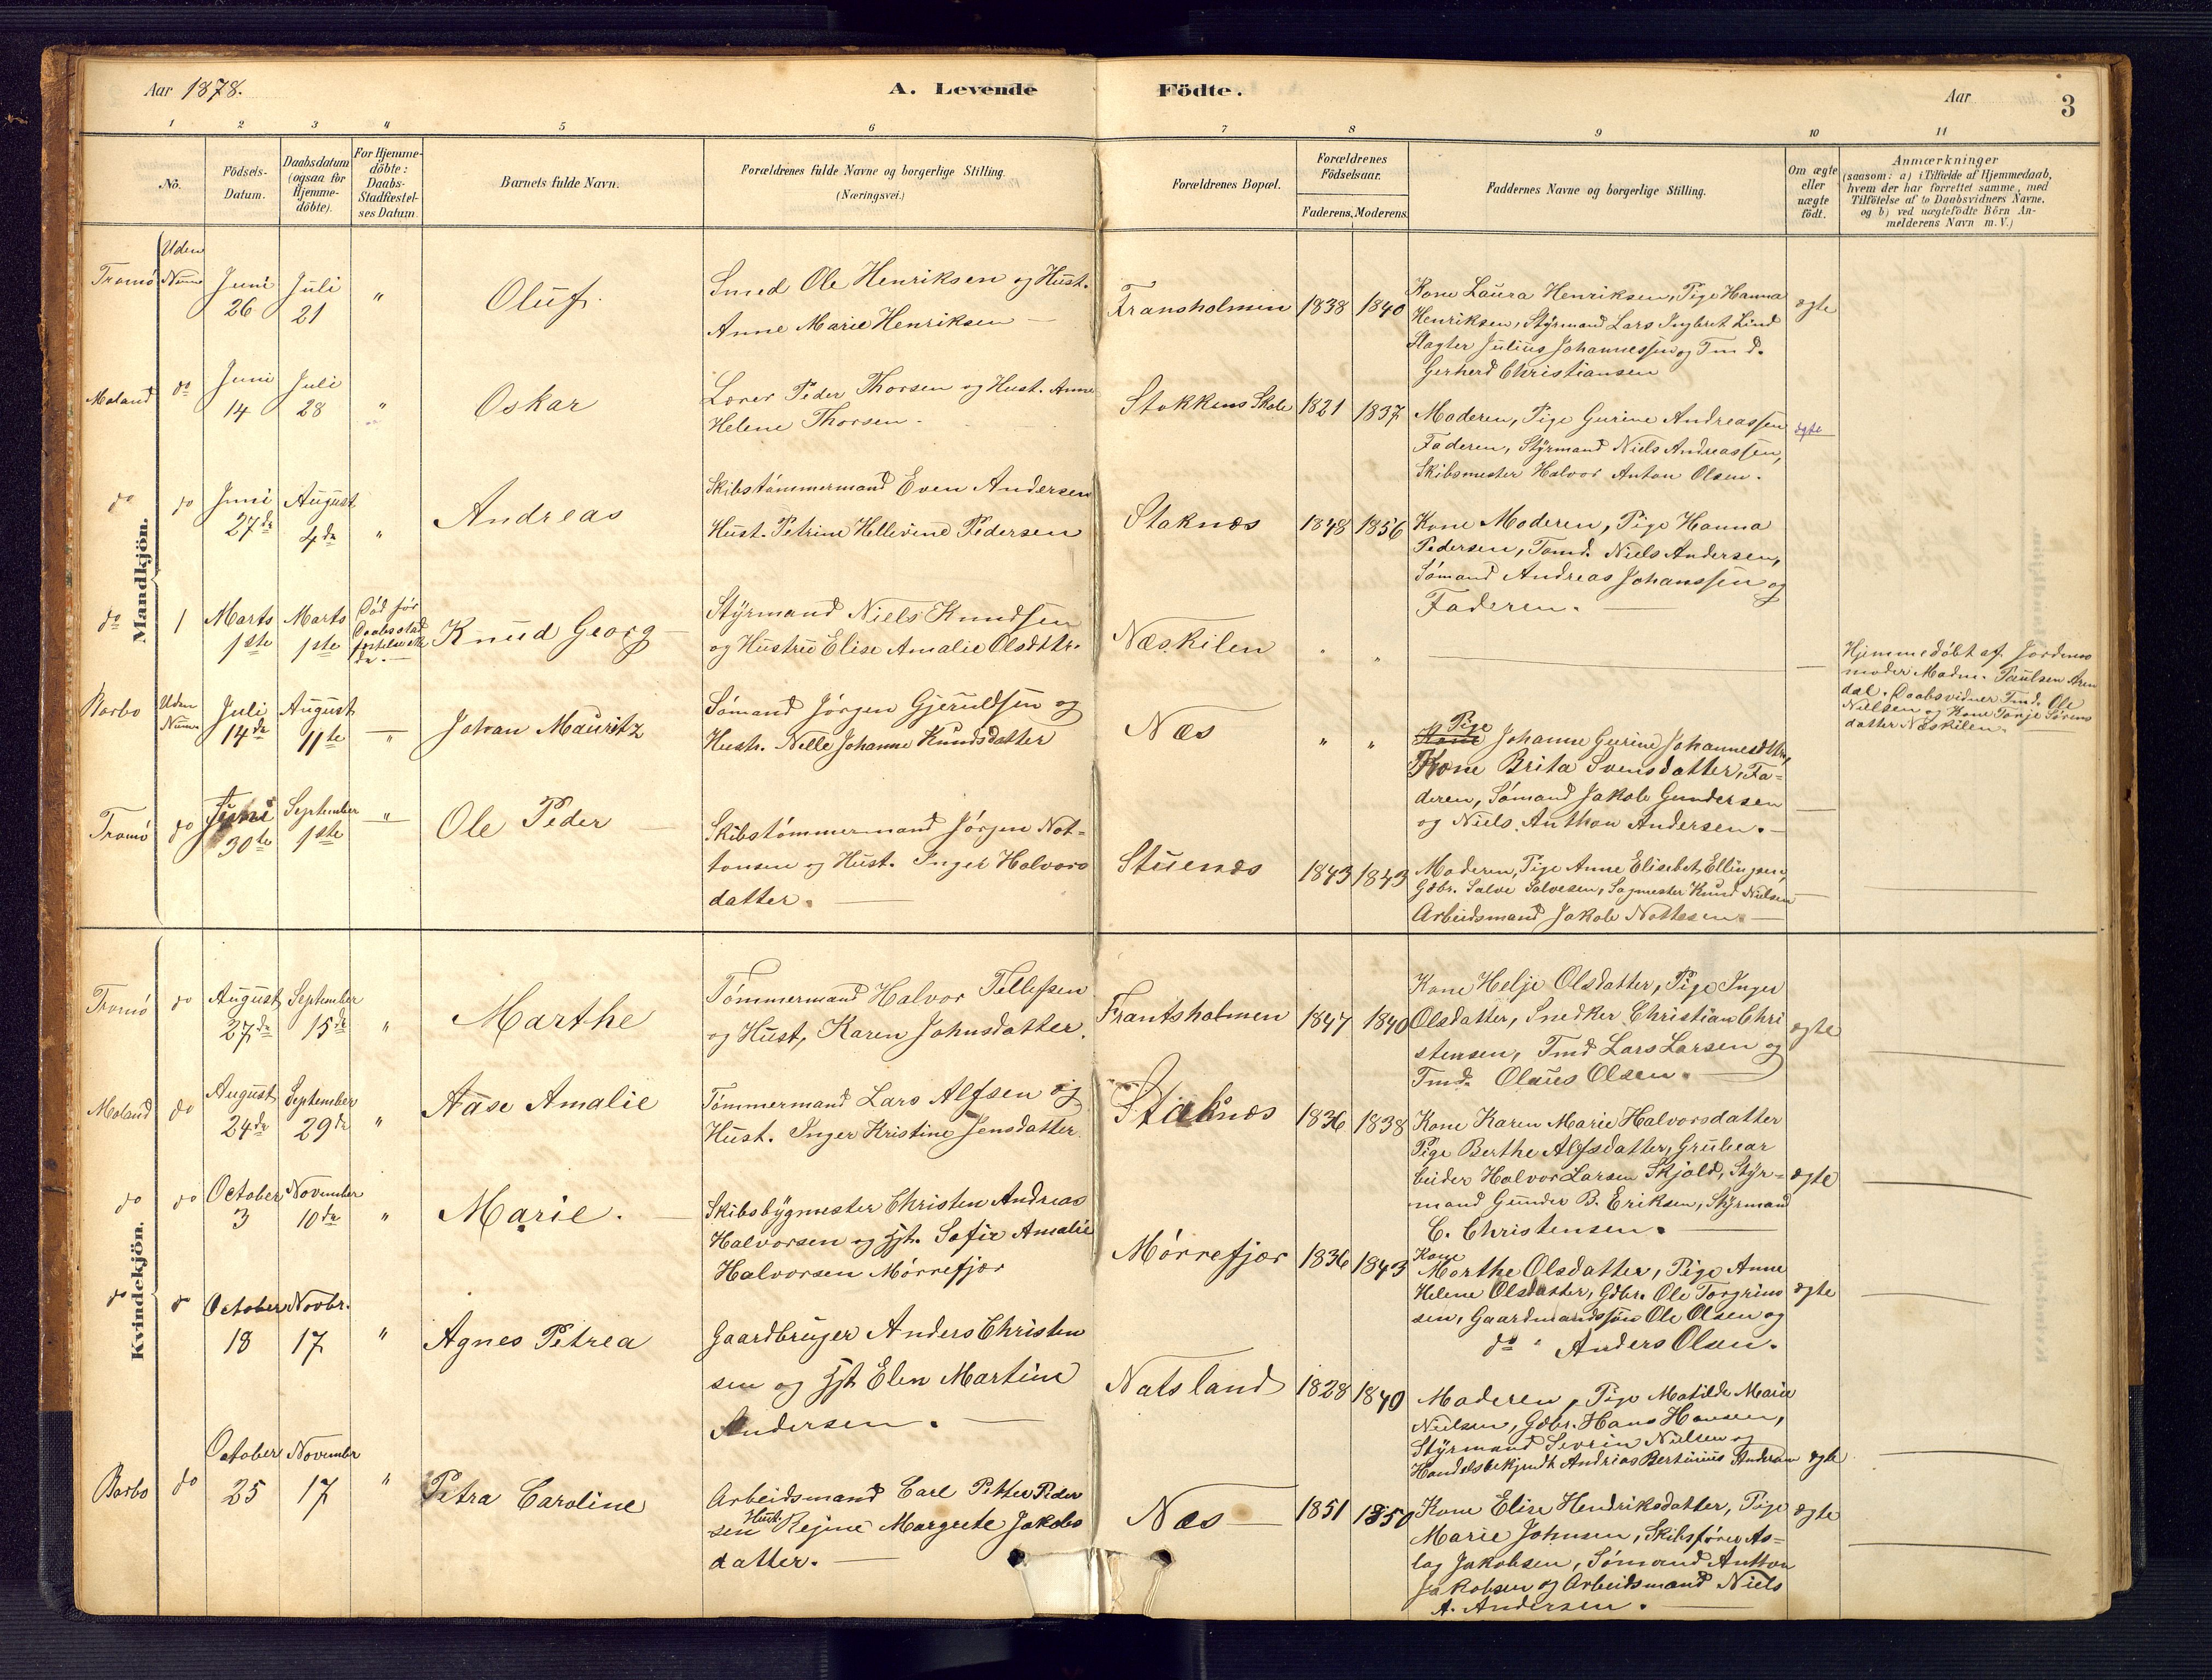 Aar 1878.
A. Levende Födte.
Aar
3
1 2 3 4 5 6 7 8 9 10 11
No.
Födsels-
Datum.
Daabsdatum
(ogsaa for
Hjemme-
döbte).
For Hjemme-
döbte:
Daabs-
Stadfæstel-
ses Datum.
Barnets fulde Navn.
Forældrenes fulde Navne og borgerlige Stilling.
(Næringsvei.)
Forældrenes Bopæl.
Forældrenes
Födselsaar.
Faderens. Moderens.
Faddernes Navne og borgerlige Stilling.
Om ægte
eller
uægte
födt.
Anmærkninger
(saasom: a) i Tilfælde af Hjemmedaab,
hvem der har forrettet samme, med
Tilföielse af to Daabsvidners Navne,
og b) ved uægtefödte Börn An-
melderens Navn m. V.)
Mandkjön.
Tromö
Uden
Numr
Juni
26
Juli
21
"
Oluf.
Smed Ole Henriksen og Hust.
Anne Marie Henriksen —
Fransholmen
1838
1840
Kone Laura Henriksen, Pige Hanna
Henriksen, Styrmand Lars Ingbret Lind
Slagter Julius Johannessen og Tmd.
Gerherd Christiansen
ægte
Moland
do
Juni
14
Juli
28
"
Oskar
Lærer Peder Thorsen og Hust. Anne
Helene Thorsen.
Stokkens Skole
1821
1837
Moderen, Pige Gurine Andreassen
Faderen, Styrmand Niels Andreassen,
Skibsmester Halvor Anton Olsen.
ægte
do
do
Juni
27de
August
4de
"
Andreas
Skibstömmermand Even Andersen
Hust. Petrine Hellevine Pedersen
Staknæs
1848
1856
Kone Moderen, Pige Hanna
Pedersen, Tømd. Niels Andersen,
Sömand Andreas Johanssen og
Faderen. —
do
1
Marts
1ste
Marts
1ste
Död för
Daabsstad
festelse
Knud Georg —
Styrmand Niels Knudsen
og Hustru Elise Amalie Olsdttr.
Næskilen
"
"
—
Hjemmedöbt af Jordemo
moder Madm. Paulsen Aren
dal. Daabsvidner Tmd. Ole
Nielsen og Kone Tonje Sörens
datter Næskilen.
Barbo
Uden
Numr
Juli
14de
August
11te
"
Johan Mauritz
Sömand Jörgen Gjeruldsen og
Hust. Nelle Johanne Kundsdatter
Næs
"
"
Pige
Kone Johanne Gurine Johannesdttr,
Kone Brita Svensdatter, Fa-
deren, Sömand Jakob Gundersen
og Niels Anthon Andersen. —
Tromö
do
Juni
30te
September
1ste
"
Ole Peder
Skibstömmermand Jörgen Not-
tonsen og Hust. Inger Halvors
datter. —
Stuenæs
1843
1843
Moderen, Pige Anne Elisebet Ellingsen,
Gdbr. Salve Salvesen, Sagmester Knud Nielsen
Arbeidsmand Jakob Nottesen —
Kvindekjön.
Tromö
do
August
27de
September
15de
"
Marthe
Tömmermand Halvor Tellefsen
og Hust, Karen Johnsdatter.
Frantsholmen
1847
1840
Kone Helje Olsdatter, Pige Inger
Olsdatter, Snedker Christian Chri
stensen, Tmd Lars Larsen og
Tmd. Olaus Olsen. —
ægte
Moland
do
August
24de
September
29de
"
Aase Amalie
Tömmermand Lars Alfsen og
Hust. Inger Kristine Jensdatter.
Staknæs
1836
1838
Kone Karen Marie Halvorsdatter
Pige Berthe Alfsdatter, Grubear
beider Halvor Larsen Skjold, Styr-
mand Gunder B. Eriksen, Styrmand
C. Christensen. —
ægte
do
do
October
3
November
10de
"
Marie. —
Skibsbygmester Christen Andreas
Halvorsen og Hst. Sofie Amalie
Halvorsen Mörrefjær
Mörrefjær
1836
1843
Kone
Marthe Olsdatter, Pige Anne
Helene Olsdatter, Gdbr. Ole Torgrims
sen, Gaardmandssön Ole Olsen og
do " Anders Olsen.
ægte
do
do
October
18
Novbr.
17
"
Agnes Petrea
Gaardbruger Anders Christen
sen og Hst. Elen Martine
Andersen. —
Natsland
1828
1840
Moderen, Pige Matilde Marie
Nielsen, Gdbr. Hans Hansen,
Styrmand Sevrin Nielsen og
Handelsbetjendt Andreas Bertinius Andersen
ægte
Barbo
do
October
25
November
17
"
Petra Caroline
Arbeidsmand Carl Petter Peder
sen Hust. Rejine Margrete Jakobs
datter. —
Næs —
1851
1850
Kone Elise Hendriksdatter, Pige
Marie Johnsen, Skibsförer As-
lag Jakobsen, Sömand Anthon
Jakobsen og Arbeidsmand Niels
A. Andersen. —
ægte